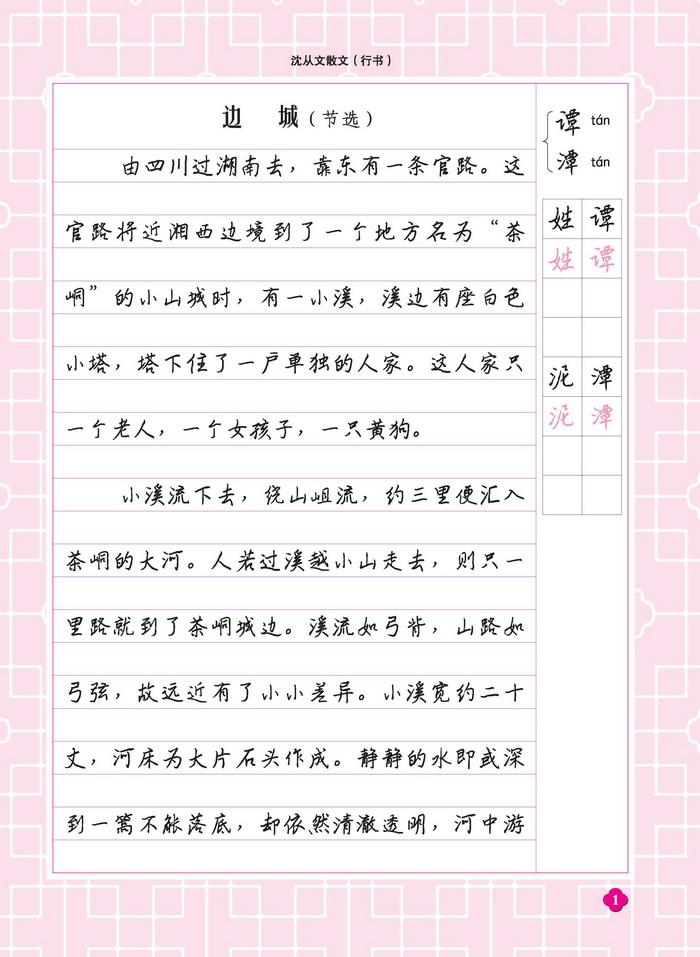 沈从文散文（行书）
边 城（节选）
由四川过湖南去，靠东有一条官路。这
官路将近湘西边境到了一个地方名为“茶
峒”的小山城时，有一小溪，溪边有座白色
小塔，塔下住了一户单独的人家。这人家只
一个老人，一个女孩子，一只黄狗。
小溪流下去，绕山岨流，约三里便汇入
茶峒的大河。人若过溪越小山走去，则只一
里路就到了茶峒城边。溪流如弓背，山路如
弓弦，故远近有了小小差异。小溪宽约二十
丈，河床为大片石头作成。静静的水即或深
到一篙不能落底，却依然清澈透明，河中游
谭 tán
潭 tán
姓 谭
姓 谭
泥 潭
泥 潭
1